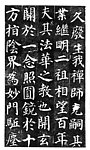 久發生我禪師克嗣其
業繼明二祖相望百年
夫其法華之教也開玄
關於一念照圓鏡於十
方指陰界為妙門駈塵